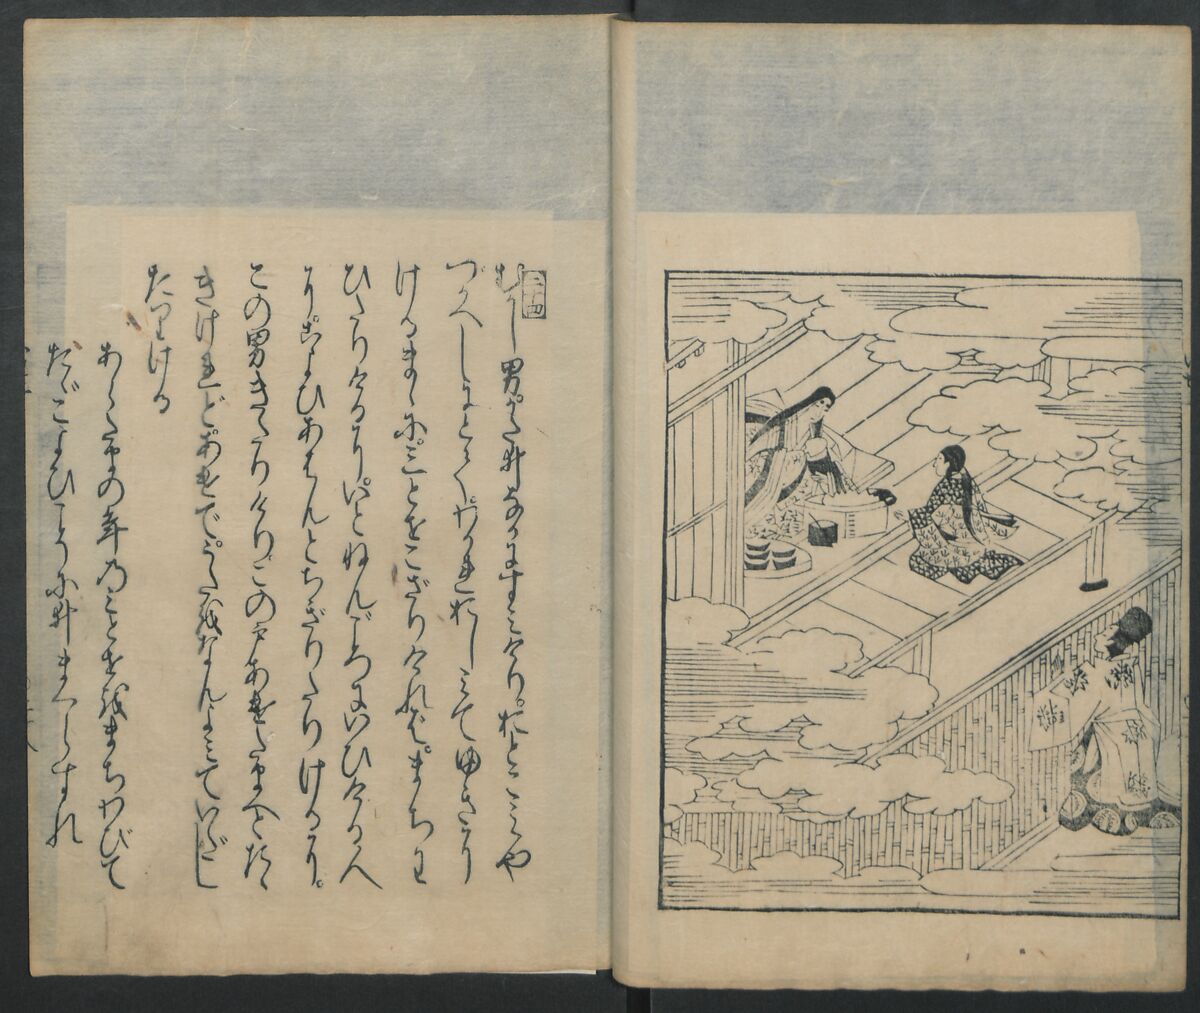 二十四
むかし男かた井なかにすみけり。おとこみや
づかへしにとて。わかれおしみてゆきに
けるまゝに。三とせこざりければ。まちわ
びたりけるに。いとねんごろにいひける人
に。こよひあはんとちぎりたりけるに。
この男きたりけりこの戸あけたまへとたゝ
きけれどあけでうたをなんよみていだし
たりける
あらたまの年のみとせをまちわびて
たゞこよひこそにゐまくらすれ